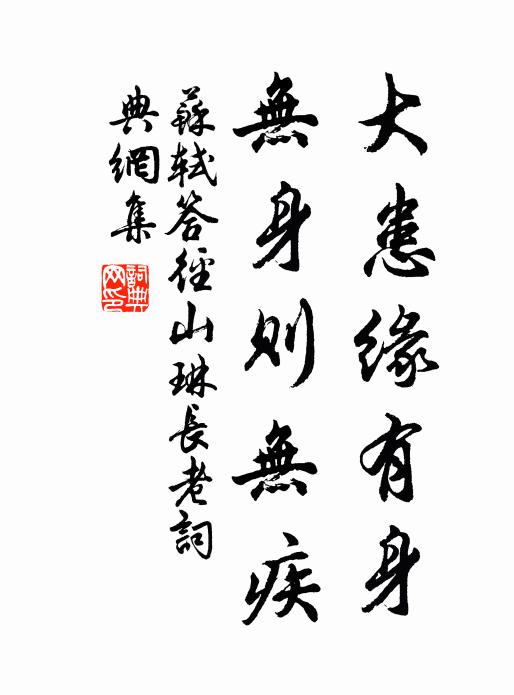 大患缘有身
無身則無疾
蘇軾答徑山琳長老詞
典網集
詞典網印